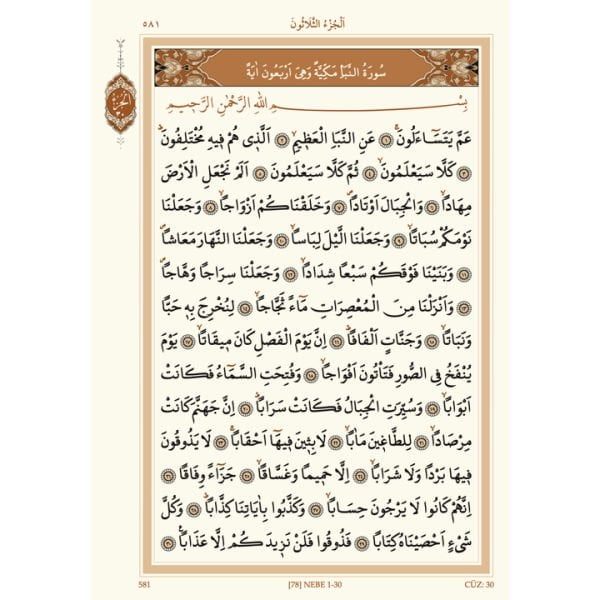 ٥٨١ اَلْجُزْءُ الثَّلَاثُونَ
الجزء ٣٠
سُورَةُ النَّبَأِ مَكِّيَّةٌ وَهِىَ اَرْبَعُونَ اٰيَةً
بِسْـــمِ اللهِ الرَّحْمٰنِ الرَّحٖيمِ
عَمَّ يَتَسَٓاءَلُونَۚ ﴿١﴾ عَنِ النَّبَأِ الْعَظٖيمِۙ ﴿٢﴾ اَلَّذٖى هُمْ فٖيهِ مُخْتَلِفُونَۜ
﴿٣﴾ كَلَّا سَيَعْلَمُونَۙ ﴿٤﴾ ثُمَّ كَلَّا سَيَعْلَمُونَ ﴿٥﴾ اَلَمْ نَجْعَلِ الْاَرْضَ
مِهَادًاۙ ﴿٦﴾ وَالْجِبَالَ اَوْتَادًاۖ ﴿٧﴾ وَخَلَقْنَاكُمْ اَزْوَاجًاۙ ﴿٨﴾ وَجَعَلْنَا
نَوْمَكُمْ سُبَاتًاۙ ﴿٩﴾ وَجَعَلْنَا الَّيْلَ لِبَاسًاۙ ﴿١٠﴾ وَجَعَلْنَا النَّهَارَ مَعَاشًاۖ
﴿١١﴾ وَبَنَيْنَا فَوْقَكُمْ سَبْعًا شِدَادًاۙ ﴿١٢﴾ وَجَعَلْنَا سِرَاجًا وَهَّاجًاۖ
﴿١٣﴾ وَاَنْزَلْنَا مِنَ الْمُعْصِرَاتِ مَٓاءً ثَجَّاجًاۙ ﴿١٤﴾ لِنُخْرِجَ بِهٖ حَبًّا
وَنَبَاتًاۙ ﴿١٥﴾ وَجَنَّاتٍ اَلْفَافًاۜ ﴿١٦﴾ اِنَّ يَوْمَ الْفَصْلِ كَانَ مٖيقَاتًاۙ ﴿١٧﴾ يَوْمَ
يُنْفَخُ فِى الصُّورِ فَتَأْتُونَ اَفْوَاجًاۙ ﴿١٨﴾ وَفُتِحَتِ السَّمَٓاءُ فَكَانَتْ
اَبْوَابًاۙ ﴿١٩﴾ وَسُيِّرَتِ الْجِبَالُ فَكَانَتْ سَرَابًاۜ ﴿٢٠﴾ اِنَّ جَهَنَّمَ كَانَتْ
مِرْصَادًاۙ ﴿٢١﴾ لِلطَّاغٖينَ مَاٰبًاۙ ﴿٢٢﴾ لَابِثٖينَ فٖيهَٓا اَحْقَابًاۚ ﴿٢٣﴾ لَا يَذُوقُونَ
فٖيهَا بَرْدًا وَلَا شَرَابًاۙ ﴿٢٤﴾ اِلَّا حَمٖيمًا وَغَسَّاقًاۙ ﴿٢٥﴾ جَزَٓاءً وِفَاقًاۜ ﴿٢٦﴾
اِنَّهُمْ كَانُوا لَا يَرْجُونَ حِسَابًاۙ ﴿٢٧﴾ وَكَذَّبُوا بِاٰيَاتِنَا كِذَّابًاۜ ﴿٢٨﴾ وَكُلَّ
شَىْءٍ اَحْصَيْنَاهُ كِتَابًاۙ ﴿٢٩﴾ فَذُوقُوا فَلَنْ نَزٖيدَكُمْ اِلَّا عَذَابًاۚ ﴿٣٠﴾
581 [78] NEBE 1-30 CÜZ: 30